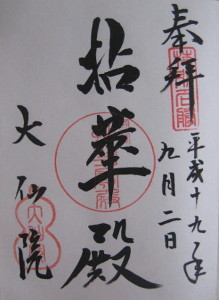 奉拝
平成十九年
九月二日
拈華殿
大仙院